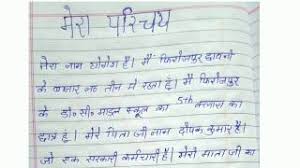 मेरा परिचय
मेरा नाम योगेश है। मैं फिरोजपुर छावनी
के बाजार नं० तीन में रहता हूं। मैं फिरोजपुर
के डी०सी० माडल स्कूल का 5th क्लास का
छात्र हूं। मेरे पिता जी नाम दीपक कुमार है।
जो एक सरकारी कर्मचारी हैं। मेरी माता जी का